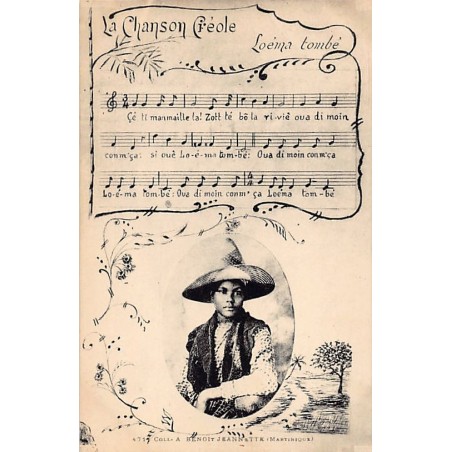 La Chanson Créole
Loéma tombé
Çé ti manmaille la! Zott té bô la ri-viè oua di moin
conm'ça: si ouè Lo-é-ma tom-bé: Oua di moin conm'ça
Lo-é-ma tom-bé: Oua di moin conm' ça Loéma tom-bé
Coll. A BENOIT JEANNETTE (MARTINIQUE)